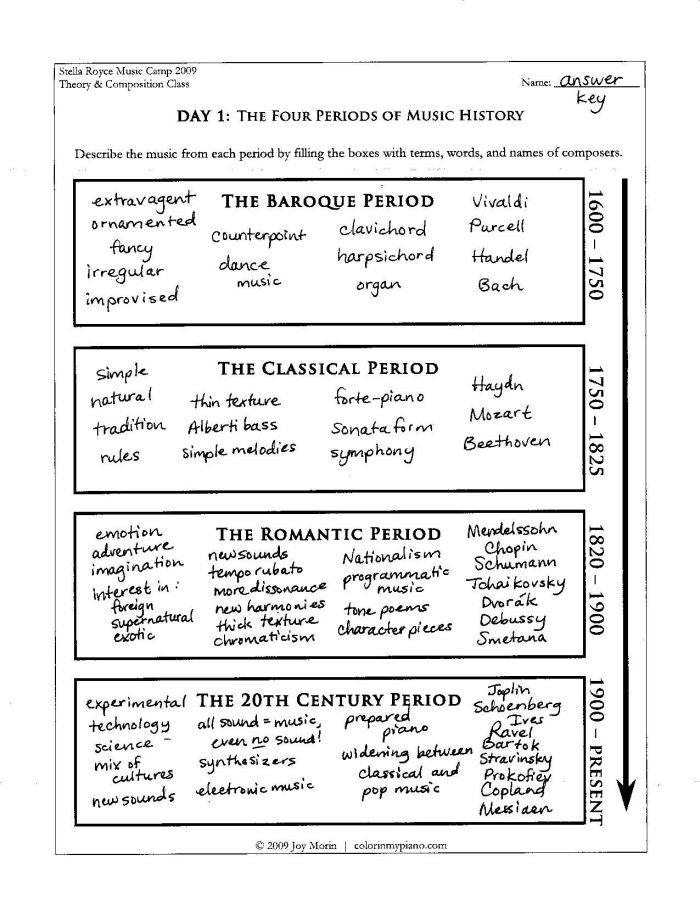 Stella Royce Music Camp 2009
Theory & Composition Class
Name: answer key
DAY 1: THE FOUR PERIODS OF MUSIC HISTORY
Describe the music from each period by filling the boxes with terms, words, and names of composers.
THE BAROQUE PERIOD
1600 – 1750
extravagent
ornamented
fancy
irregular
improvised
counterpoint
dance
music
clavichord
harpsichord
organ
Vivaldi
Purcell
Handel
Bach
THE CLASSICAL PERIOD
1750 – 1825
simple
natural
tradition
rules
thin texture
Alberti bass
simple melodies
forte-piano
Sonata form
symphony
Haydn
Mozart
Beethoven
THE ROMANTIC PERIOD
1820 – 1900
emotion
adventure
imagination
interest in:
foreign
supernatural
exotic
new sounds
tempo rubato
more dissonance
new harmonies
thick texture
chromaticism
Nationalism
programmatic
music
tone poems
character pieces
Mendelssohn
Chopin
Schumann
Tchaikovsky
Dvorák
Debussy
Smetana
THE 20TH CENTURY PERIOD
1900 – PRESENT
experimental
technology
science –
mix of
cultures
new sounds
all sound = music,
even no sound!
synthesizers
electronic music
prepared
piano
widening between
classical and
pop music
Joplin
Schoenberg
Ives
Ravel
Bartok
Stravinsky
Prokofiev
Copland
Messiaen
© 2009 Joy Morin | colorinmypiano.com